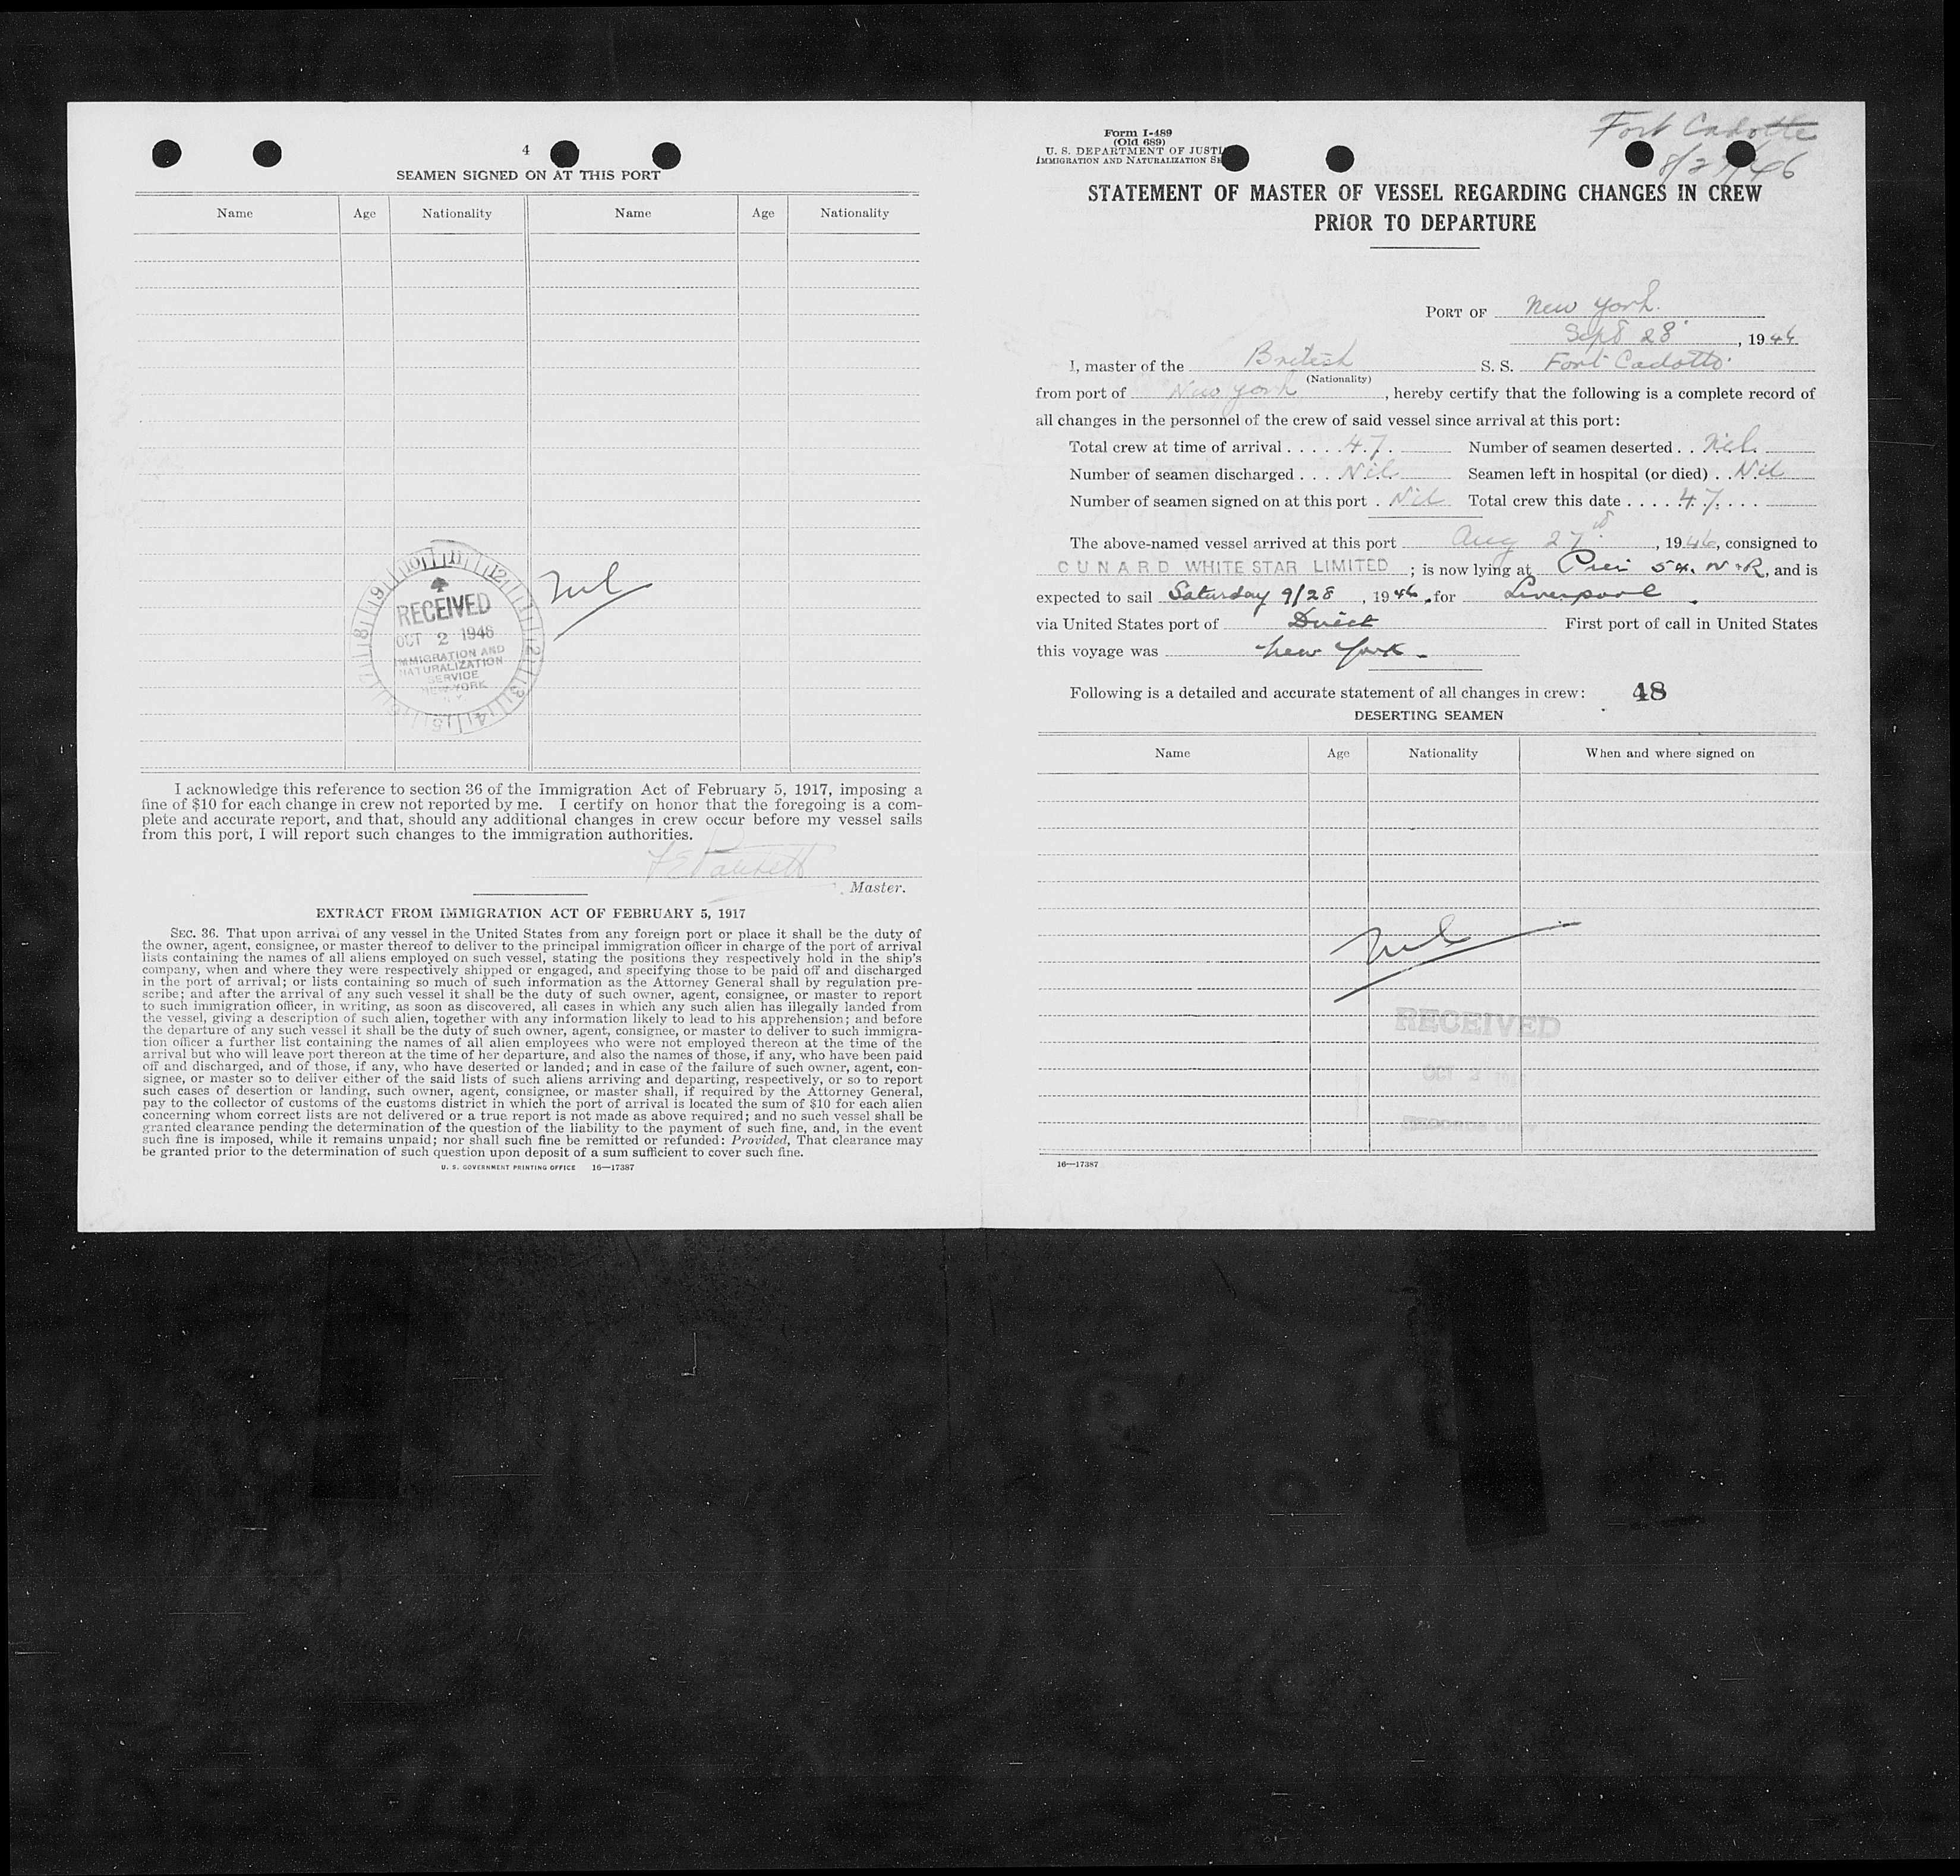 4
SEAMEN SIGNED ON AT THIS PORT
Name Age Nationality Name Age Nationality
Nil
10 11 12 1 2 3 4 5 7 8 9
RECEIVED
OCT 2 1946
IMMIGRATION AND
NATURALIZATION
SERVICE
NEW YORK
I acknowledge this reference to section 36 of the Immigration Act of February 5, 1917, imposing a
fine of $10 for each change in crew not reported by me. I certify on honor that the foregoing is a com-
plete and accurate report, and that, should any additional changes in crew occur before my vessel sails
from this port, I will report such changes to the immigration authorities.
Master.
EXTRACT FROM IMMIGRATION ACT OF FEBRUARY 5, 1917
SEC. 36. That upon arrival of any vessel in the United States from any foreign port or place it shall be the duty of
the owner, agent, consignee, or master thereof to deliver to the principal immigration officer in charge of the port of arrival
lists containing the names of all aliens employed on such vessel, stating the positions they respectively hold in the ship's
company, when and where they were respectively shipped or engaged, and specifying those to be paid off and discharged
in the port of arrival; or lists containing so much of such information as the Attorney General shall by regulation pre-
scribe; and after the arrival of any such vessel it shall be the duty of such owner, agent, consignee, or master to report
to such immigration officer, in writing, as soon as discovered, all cases in which any such alien has illegally landed from
the vessel, giving a description of such alien, together with any information likely to lead to his apprehension; and before
the departure of any such vessel it shall be the duty of such owner, agent, consignee, or master to deliver to such immigra-
tion officer a further list containing the names of all alien employees who were not employed thereon at the time of the
arrival but who will leave port thereon at the time of her departure, and also the names of those, if any, who have been paid
off and discharged, and of those, if any, who have deserted or landed; and in case of the failure of such owner, agent, con-
signee, or master so to deliver either of the said lists of such aliens arriving and departing, respectively, or so to report
such cases of desertion or landing, such owner, agent, consignee, or master shall, if required by the Attorney General,
pay to the collector of customs of the customs district in which the port of arrival is located the sum of $10 for each alien
concerning whom correct lists are not delivered or a true report is not made as above required; and no such vessel shall be
granted clearance pending the determination of the question of the liability to the payment of such fine, and, in the event
such fine is imposed, while it remains unpaid; nor shall such fine be remitted or refunded: Provided, That clearance may
be granted prior to the determination of such question upon deposit of a sum sufficient to cover such fine.
U. S. GOVERNMENT PRINTING OFFICE 16—17387
Fort Cadotte
8/27/46
Form I-489
(Old 689)
U. S. DEPARTMENT OF JUSTI
IMMIGRATION AND NATURALIZATION SE
STATEMENT OF MASTER OF VESSEL REGARDING CHANGES IN CREW
PRIOR TO DEPARTURE
PORT OF New York.
Sept 28, 1946
I, master of the British S. S. Fort Cadotto
(Nationality)
from port of New York, hereby certify that the following is a complete record of
all changes in the personnel of the crew of said vessel since arrival at this port:
Total crew at time of arrival . . . . . 47. Number of seamen deserted . . Nil.
Number of seamen discharged . . . Nil. Seamen left in hospital (or died) . . Nil
Number of seamen signed on at this port . Nil Total crew this date . . . . . 47. . . .
The above-named vessel arrived at this port Aug 27, 1946, consigned to
CUNARD WHITE STAR LIMITED; is now lying at Pier 54. N.R, and is
expected to sail Saturday 9/28, 1946, for Liverpool.
via United States port of Direct First port of call in United States
this voyage was New York.
Following is a detailed and accurate statement of all changes in crew: 48
DESERTING SEAMEN
Name Age Nationality When and where signed on
Nil
RECEIVED
OCT 2
16—17387